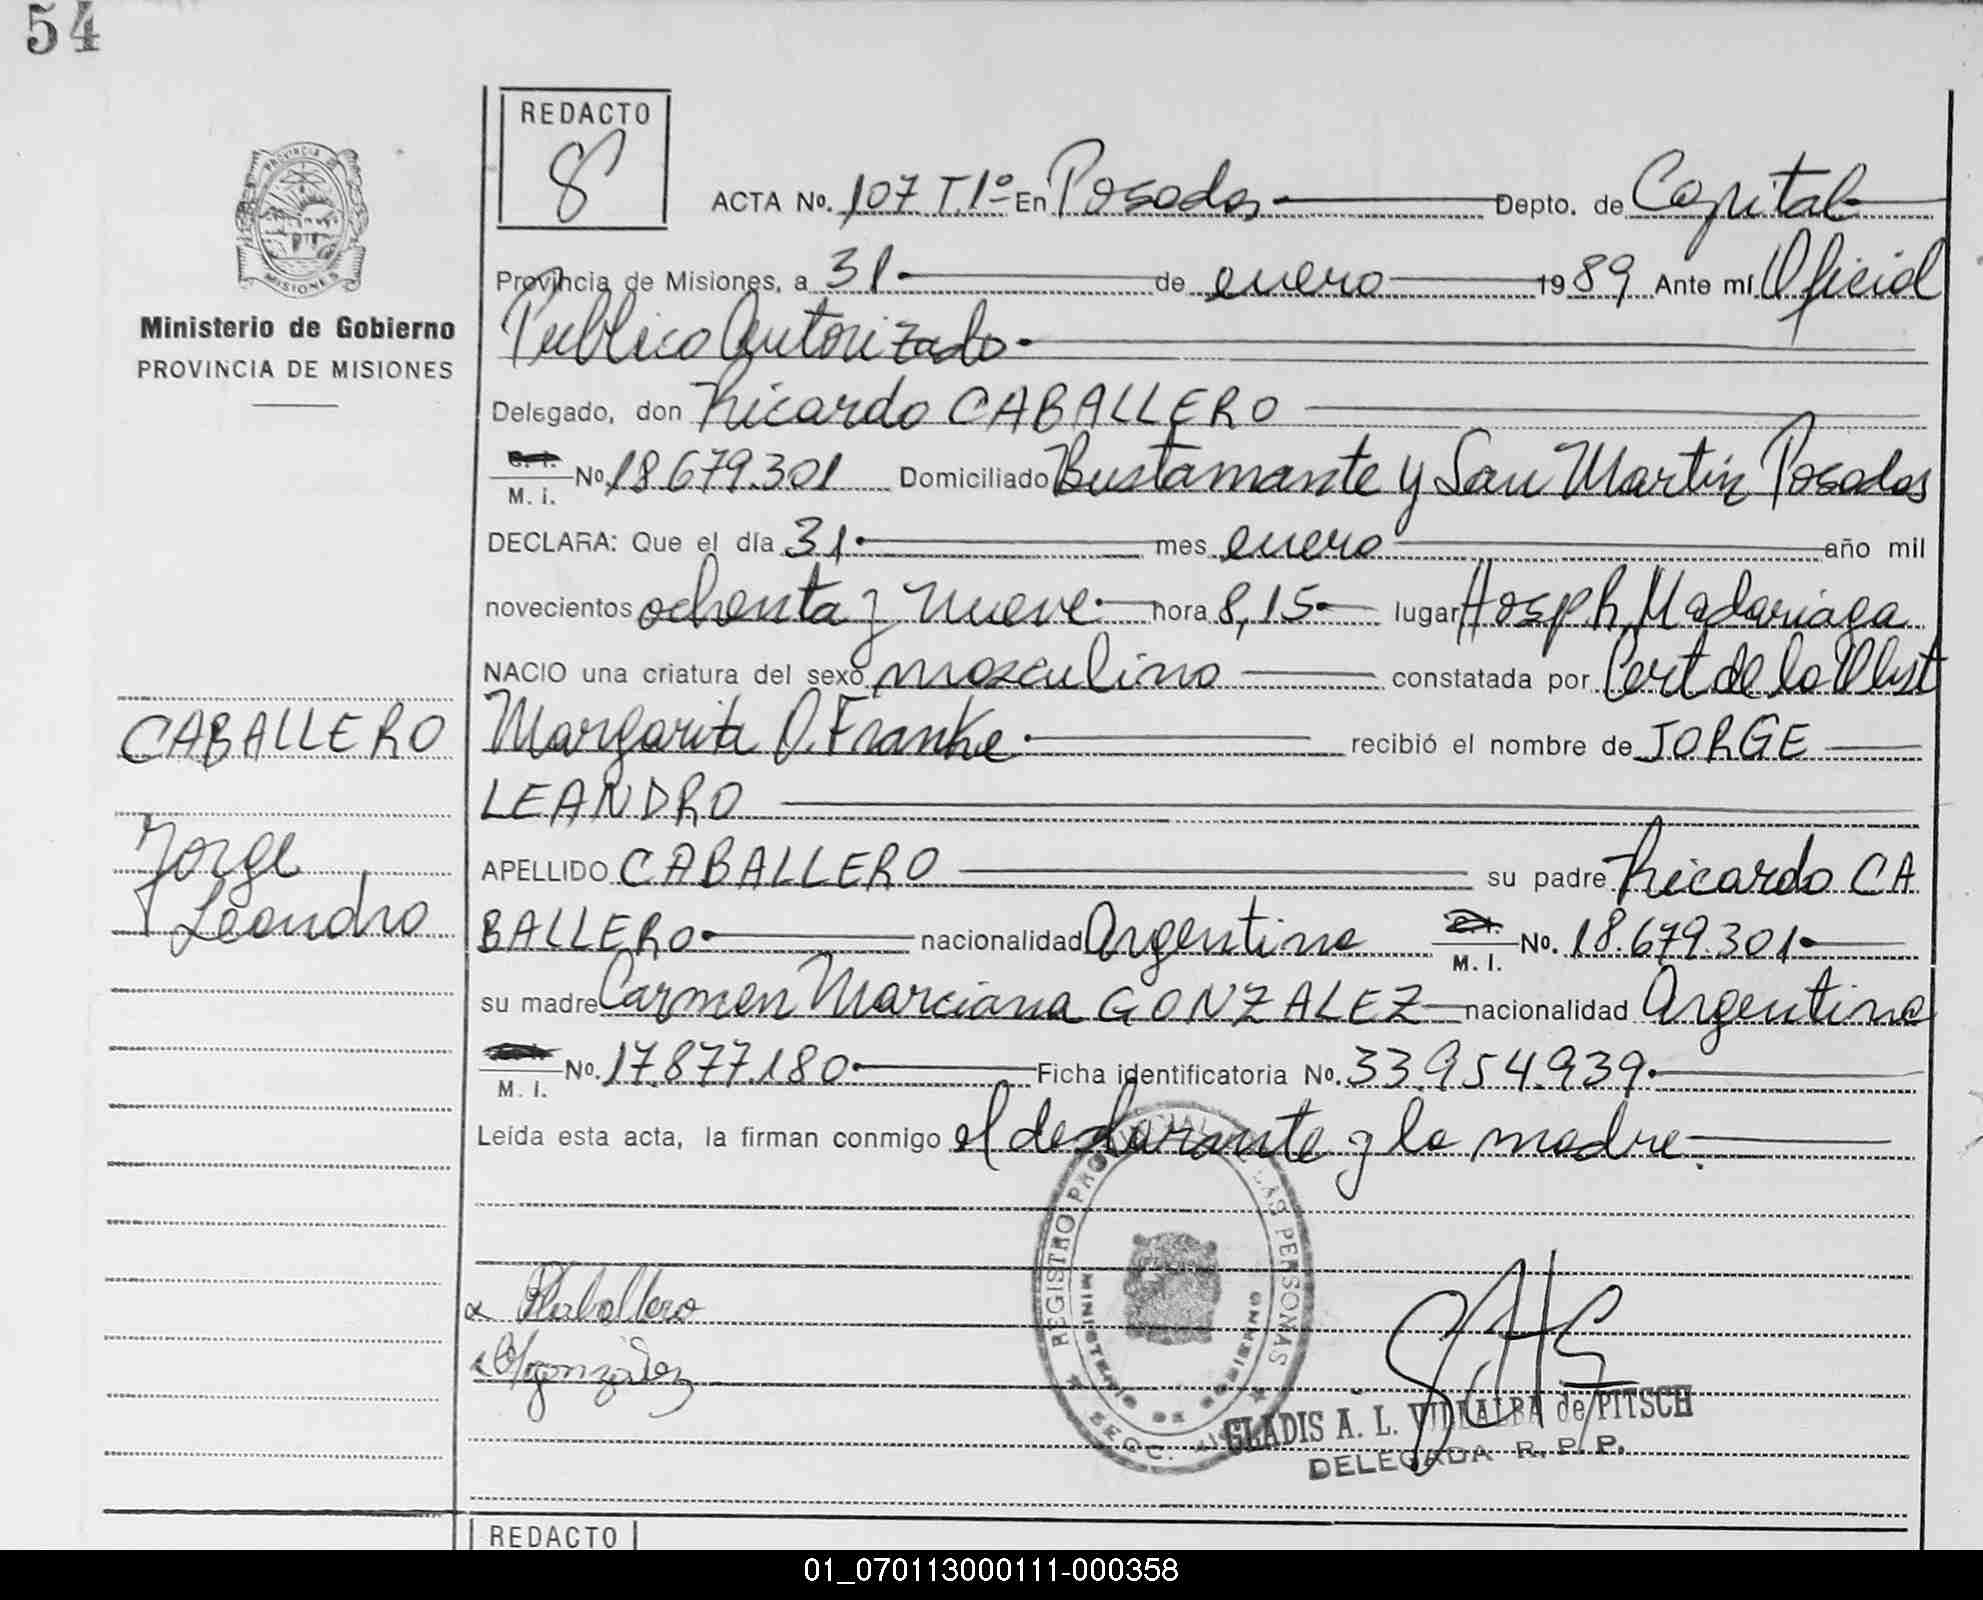 54
REDACTO
PROVINCIA DE MISIONES
Ministerio de Gobierno
PROVINCIA DE MISIONES
ACTA No. 107 T.1º En Posadas Depto. de Capital
Provincia de Misiones, a 31 de enero 1989 Ante mí Oficial
Publico Autorizado
Delegado, don Ricardo CABALLERO
M. I. No. 18.679.301 Domiciliado Bustamante y San Martín Posadas
DECLARA: Que el día 31 mes enero año mil
novecientos ochenta y nueve hora 8,15 lugar Hosp R. Madariaga
NACIO una criatura del sexo masculino constatada por Cert de la Obst
Margarita O. Franke recibió el nombre de JORGE
LEANDRO
APELLIDO CABALLERO su padre Ricardo CA
BALLERO nacionalidad Argentina M. I. No. 18.679.301
su madre Carmen Marciana GONZALEZ nacionalidad Argentina
M. I. No. 17.877.180 Ficha identificatoria No. 33.954.939
Leída esta acta, la firman conmigo el declarante y la madre.
CABALLERO
Jorge
Leandro
REGISTRO PROVINCIAL DE LAS PERSONAS
MINISTERIO DE GOBIERNO
SECC.
RCaballero
González
GLADIS A. L. VILLALBA de PITSCH
DELEGADA R. P. P.
REDACTO
01_070113000111-000358